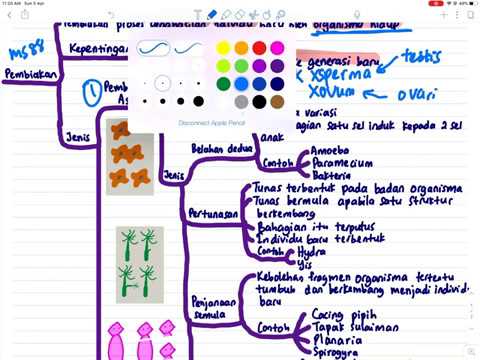 11:00 AM Sun 5 Apr
43%
Pembiakan proses
organisma hidup
ms 88
Kepentingan
generasi baru
testis
Pembiakan
x sperma
x ovum
ovari
1
Pemb
As
Disconnect Apple Pencil
variasi
satu sel induk kepada 2 sel
anak
Jenis
Belahan dedua
Contoh
Amoeba
Paramecium
Bakteria
Jenis
Pertunasan
Tunas terbentuk pada badan organisma
Tunas bermula apabila satu struktur
berkembang
Bahagian itu terputus
Individu baru terbentuk
Contoh
Hydra
Yis
Penjanaan
semula
Kebolehan fragmen organisma tertentu
tumbuh dan berkembang menjadi individu
baru
Contoh
Cacing pipih
Tapak sulaiman
Planaria
Spirogyra